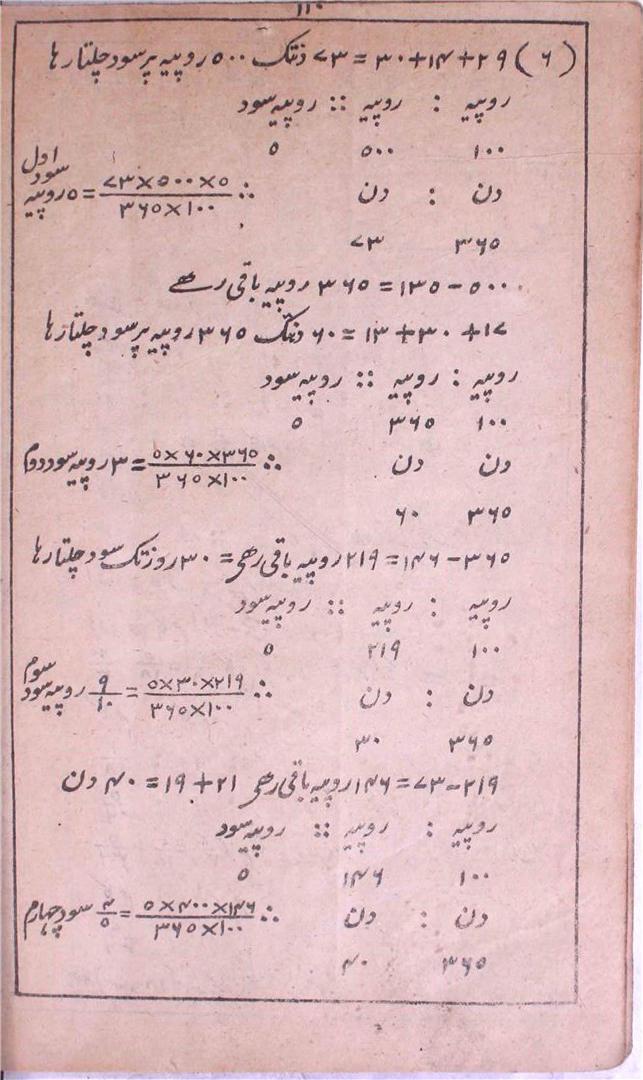 ۱۱۰
(۶) ۲۹+۱۴+۳۰=۷۳ دنتک ۵۰۰ روپیہ پر سود چلتا رہا
روپیہ : روپیہ :: روپیہ سود
۱۰۰ ۵۰۰ ۵
دن : دن ∴ ۷۳×۵۰۰×۵ / ۳۶۰×۱۰۰ = ۵ روپیہ سود اول
۳۶۵ ۷۳
۵۰۰-۱۳۵=۳۶۵ روپیہ باقی رہے
۱۷+۳۰+۱۳=۶۰ دنتک ۳۶۵ روپیہ پر سود چلتا رہا
روپیہ : روپیہ :: روپیہ سود
۱۰۰ ۳۶۵ ۵
دن دن ∴ ۵×۶۰×۳۶۵ / ۳۶۰×۱۰۰ = ۳ روپیہ سود دوم
۳۶۵ ۶۰
۳۶۵-۱۴۶=۲۱۹ روپیہ باقی رہی=۳۰ روز تک سود چلتا رہا
روپیہ : روپیہ :: روپیہ سود
۱۰۰ ۲۱۹ ۵
دن : دن ∴ ۵×۳۰×۲۱۹ / ۳۶۰×۱۰۰ = ۹/۱۰ روپیہ سود سوم
۳۶۵ ۳۰
۲۱۹-۷۳=۱۴۶ روپیہ باقی رہی ۲۱+۱۹=۴۰ دن
روپیہ : روپیہ :: روپیہ سود
۱۰۰ ۱۴۶ ۵
دن : دن ∴ ۵×۴۰۰×۱۴۶ / ۳۶۵×۱۰۰ = ۴/۵ سود چہارم
۳۶۵ ۴۰